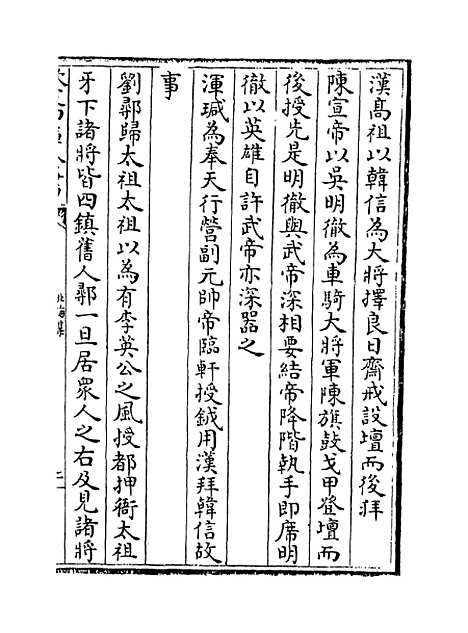 漢高祖以韓信為大將擇良日齋戒設壇而後拜
陳宣帝以吳明徹為車騎大將軍陳旗鼓戈甲登壇而
後授先是明徹與武帝深相要結帝降階執手即席明
徹以英雄自許武帝亦深器之
渾瑊為奉天行營副元帥帝臨軒授鉞用漢拜韓信故
事
劉鄩歸太祖太祖以為有李英公之風授都押衙太祖
牙下諸將皆四鎮舊人鄩一旦居衆人之右及見諸將